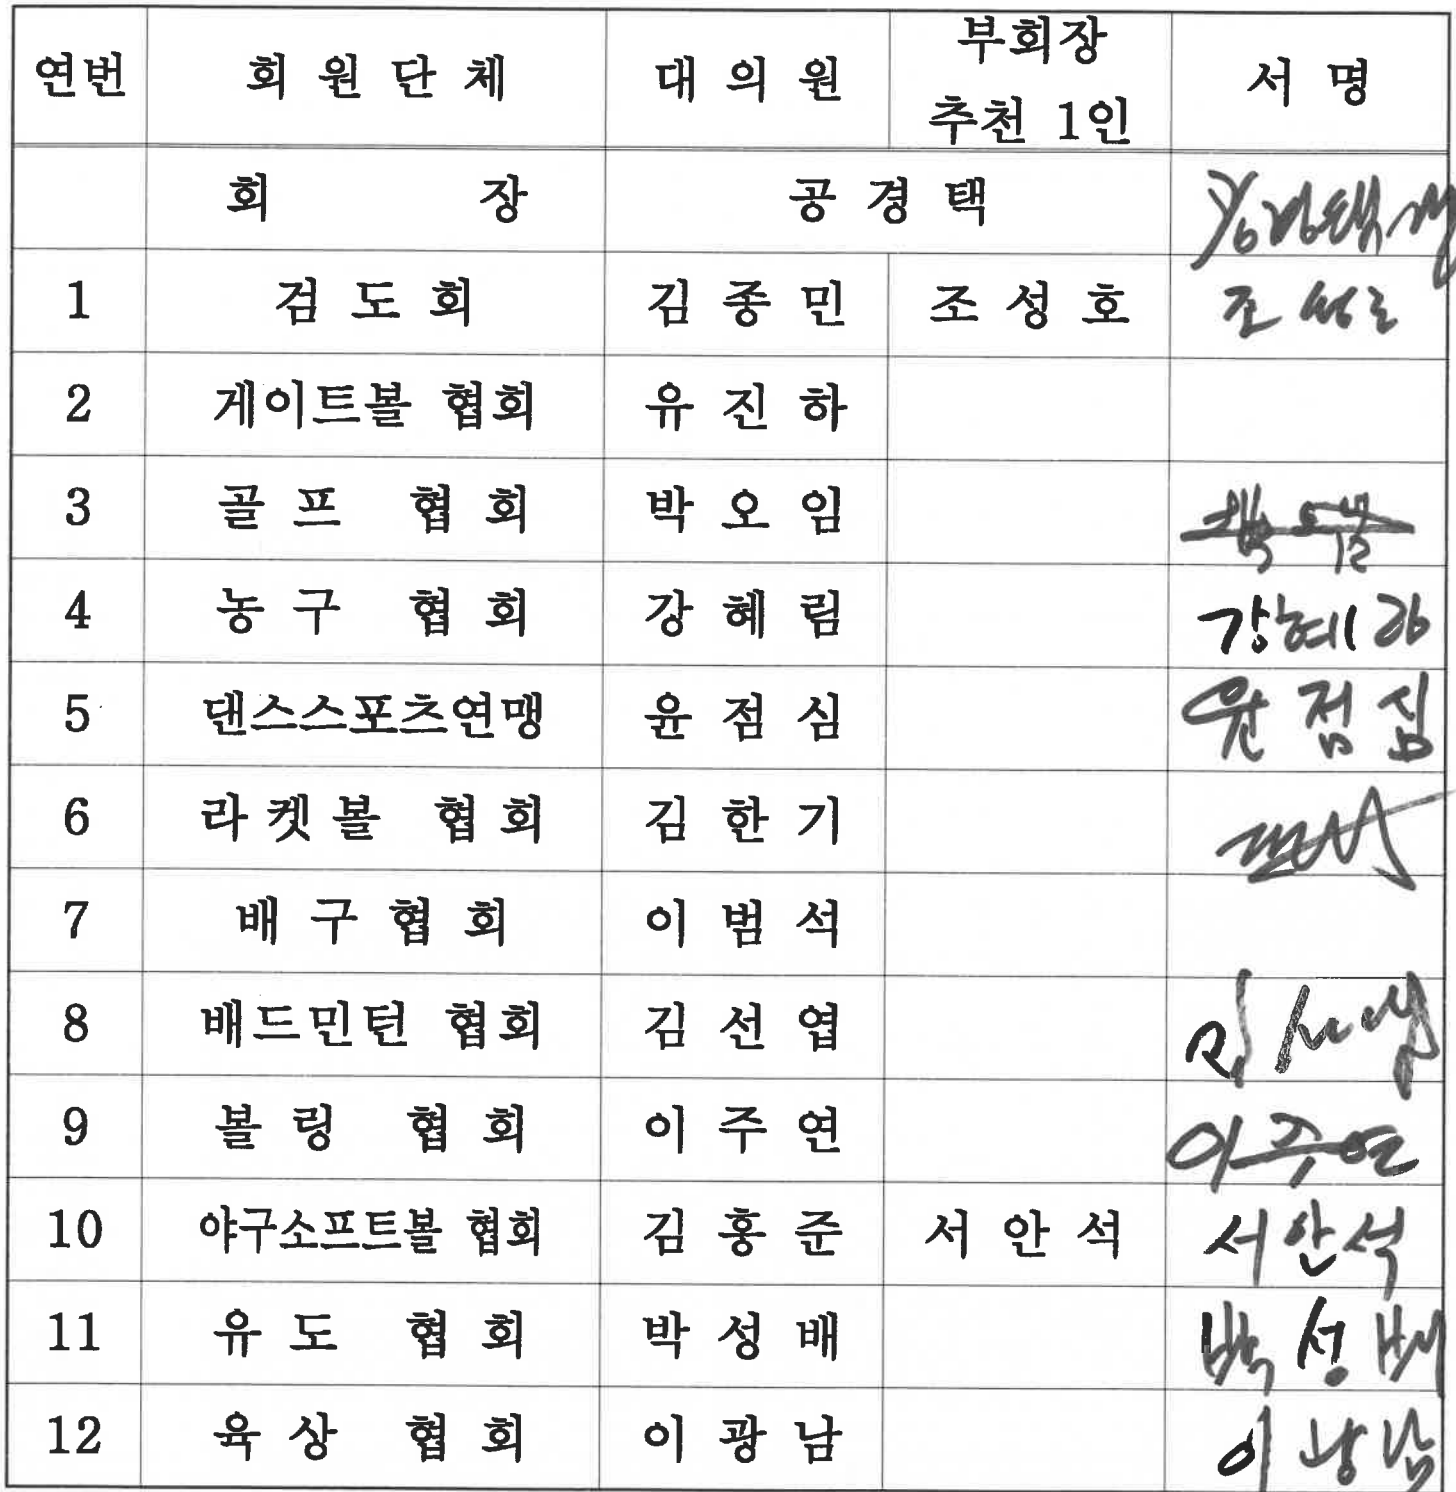 연번 회 원 단 체 대 의 원 부회장 추천 1인 서 명
회 장 공 경 택
1 검 도 회 김 종 민 조 성 호 조 성호
2 게이트볼 협회 유 진 하
3 골 프 협 회 박 오 임
4 농 구 협 회 강 혜 림 강혜림
5 댄스스포츠연맹 윤 점 심 윤 점 심
6 라 켓 볼 협 회 김 한 기
7 배 구 협 회 이 범 석
8 배드민턴 협회 김 선 엽
9 볼 링 협 회 이 주 연 이주연
10 야구소프트볼 협회 김 홍 준 서 안 석 서안석
11 유 도 협 회 박 성 배 박 성 배
12 육 상 협 회 이 광 남 이 광 남